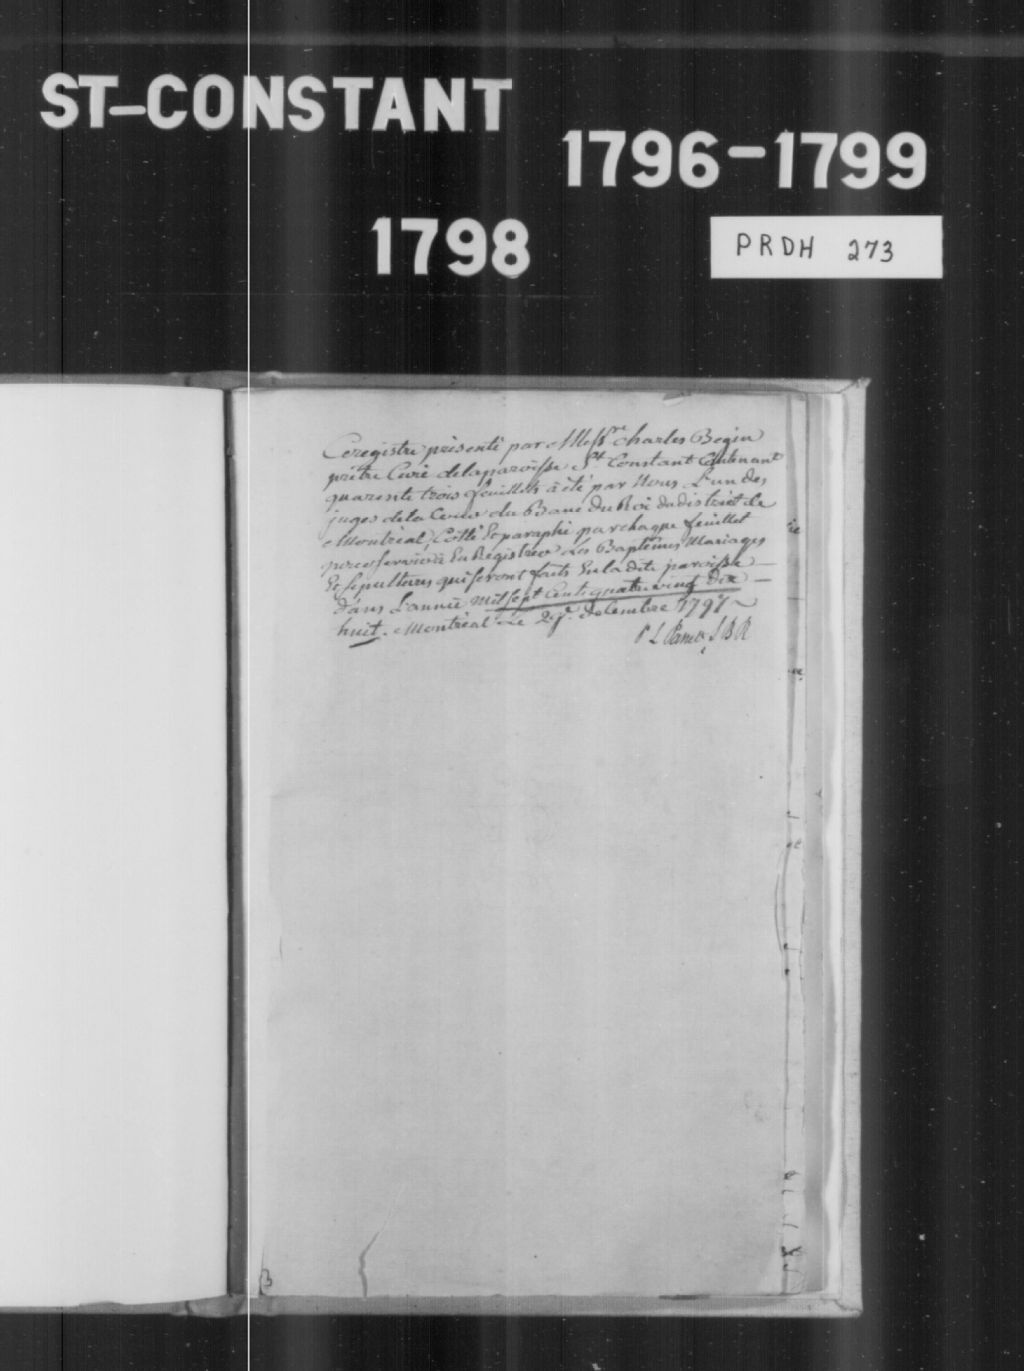 ST-CONSTANT
1796-1799
1798
PRDH 273
Ce registre présenté par Messre charles Begin
prêtre Curé de la paroisse St Constant Contenant
quarente trois feuillets à été par Nous L'un des
juges de la Cour du Banc du Roi du district de
Montréal, Cotté Et paraphé par chaque feuillet
pour servir à En Registrer Les Baptêmes Mariages
Et sepultures qui seront faits En la dite paroisse
dans L'année mil sept Cent quatre vingt dix
huit. Montréal Le decembre 1797
P L Panet J B R